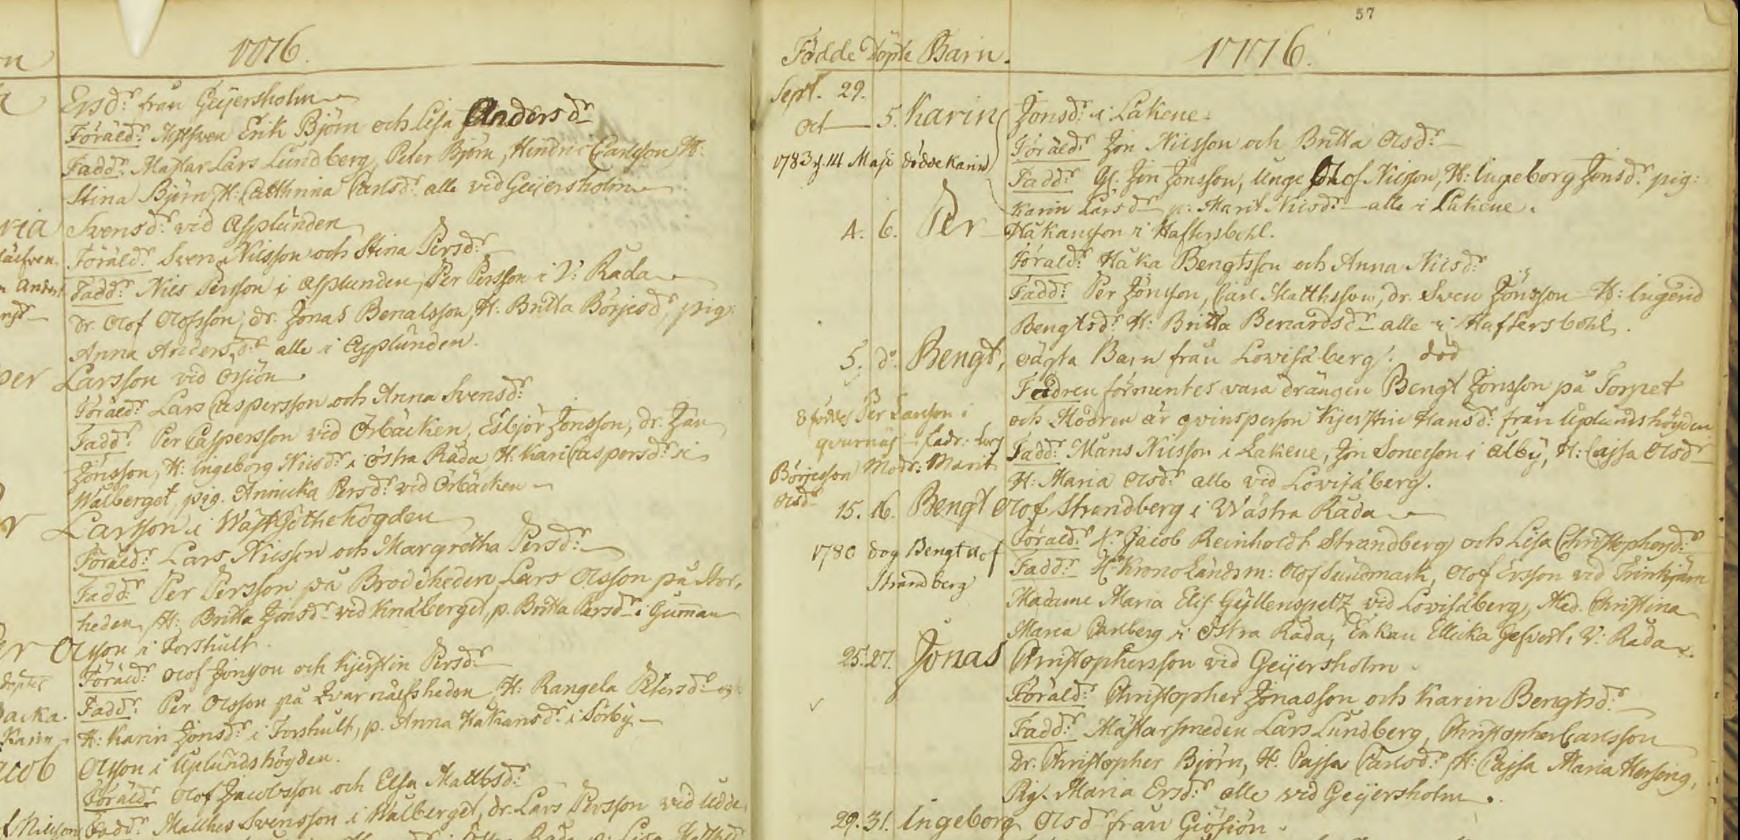 1776.
Ersdr. från Geijersholm
Föräldr. Mstsven Erik Björn och Lisa Andersdr
Fadd. Mästar Lars Lundberg, Peter Björn, Hindric Carlsson H:
Stina Björn H: Catthrina Carlsdr. alle vid Geijersholm
Svensdr. vid Asplunden
Föräldr. Sven Nilsson och Stina Persdr.
Fadd. Nils Persson i Asplunden, Per Persson i V: Råda
dr. Olof Olofsson, dr. Jonas Benalsson, H: Britta Börjesdr. pig.
Anna Andersdr. alle i Asplunden.
Larsson vid
Föräldr. Lars Caspersson och Anna Svensdr.
Fadd. Per Caspersson vid Örbäcken, Esbjör Jonsson, dr. Jan
Jönsson, H: Ingeborg Nilsdr. i Östra Råda H: Kari Caspersdr. i
Walberget pig. Annicka Persdr. vid Örbäcken
Larsson i WästGötthehögden
Föräldr. Lars Nilsson och Margretha Persdr.
Fadd. Per Persson på Brodeheden, Lars Olsson på Stor,
heden, H: Britta Jonsdr. vid Knåberget, p. Britta Persdr. i
Olsson i Forshult.
Föräldr. Olof Jonsson och Kjerstin Persdr.
Fadd. Per Olsson på H: Rangela Petersdr.
H: Karin Jönsdr. i Forshult, p. Anna Håkansdr. i Sörby.
Olsson i Uplundshögden.
Föräldr. Olof Jacobsson och Elsa Mattsdr.
Fadd. Matthes Svensson i Walberget, dr. Lars Persson vid Udde
57
Födde Döpte Barn. 1776.
Sept. 29.
Oct 5. Karin Jonsdr. i Lakene.
Föräld. Jon Nilsson och Britta Olsdr.
1783 d. 14 Maji dödde Karin
Fadd. Gl. Jon Jonsson, Unge Olof Nilsson, H: Ingeborg Jonsdr. pig:
Karin Larsdr. p: Marit Nilsdr. alle i Lakene.
4. 6. Per Håkansson i Haftersbohl.
Föräld. Håka Bengtsson och Anna Nilsdr.
Fadd. Per Jönsson, Carl Matthsson, dr. Sven Jönsson H: Ingerid
Bengtsdr. H: Britta Benardsdr. alle i Haftersbohl.
5. do. Bengt, oägta Barn från Lovisäberg. död
Fadren förmentes vara drängen Bengt Jonsson på Torpet
och Modren är qvinsperson Kjerstin Hansdr. från Uplundshögden
8 föddes Per Larsson i
qvarnäs Fadr: Lars
Börjesson Modr: Marit
Olsdr
Fadd. Måns Nilsson i Lakene, Jon Sonesson i Alby, H: Cajsa Olsdr
H: Maria Olsdr. alle vid Lovisäberg.
15. 16. Bengt Olof Strandberg i Wästra Råda
Föräld. Hr Jacob Reinholdt Strandberg och Lisa Christophersdr.
1780 dog Bengt Olof
Strandberg
Fadd. Hr KronoLänsm: Olof Sundmark, Olof Ersson vid
Madame Maria Elis. Gyllenspetz vid Lovisäberg, Mad. Christina
Maria Carlberg i Östra Råda, Enkan Ellicka Gefvert i V: Råda.
25. 27. Jonas Christophersson vid Geijersholm.
Föräld. Christopher Jonasson och Karin Bengtsdr.
Fadd. Mästarsmeden Lars Lundberg, Christopher Carlsson
Dr. Christopher Björn, H. Cajsa Carlsdr. H: Cajsa Maria
Pig. Maria Ersdr. alle vid Geijersholm.
29. 31. Ingeborg Olsdr från Giösiön.